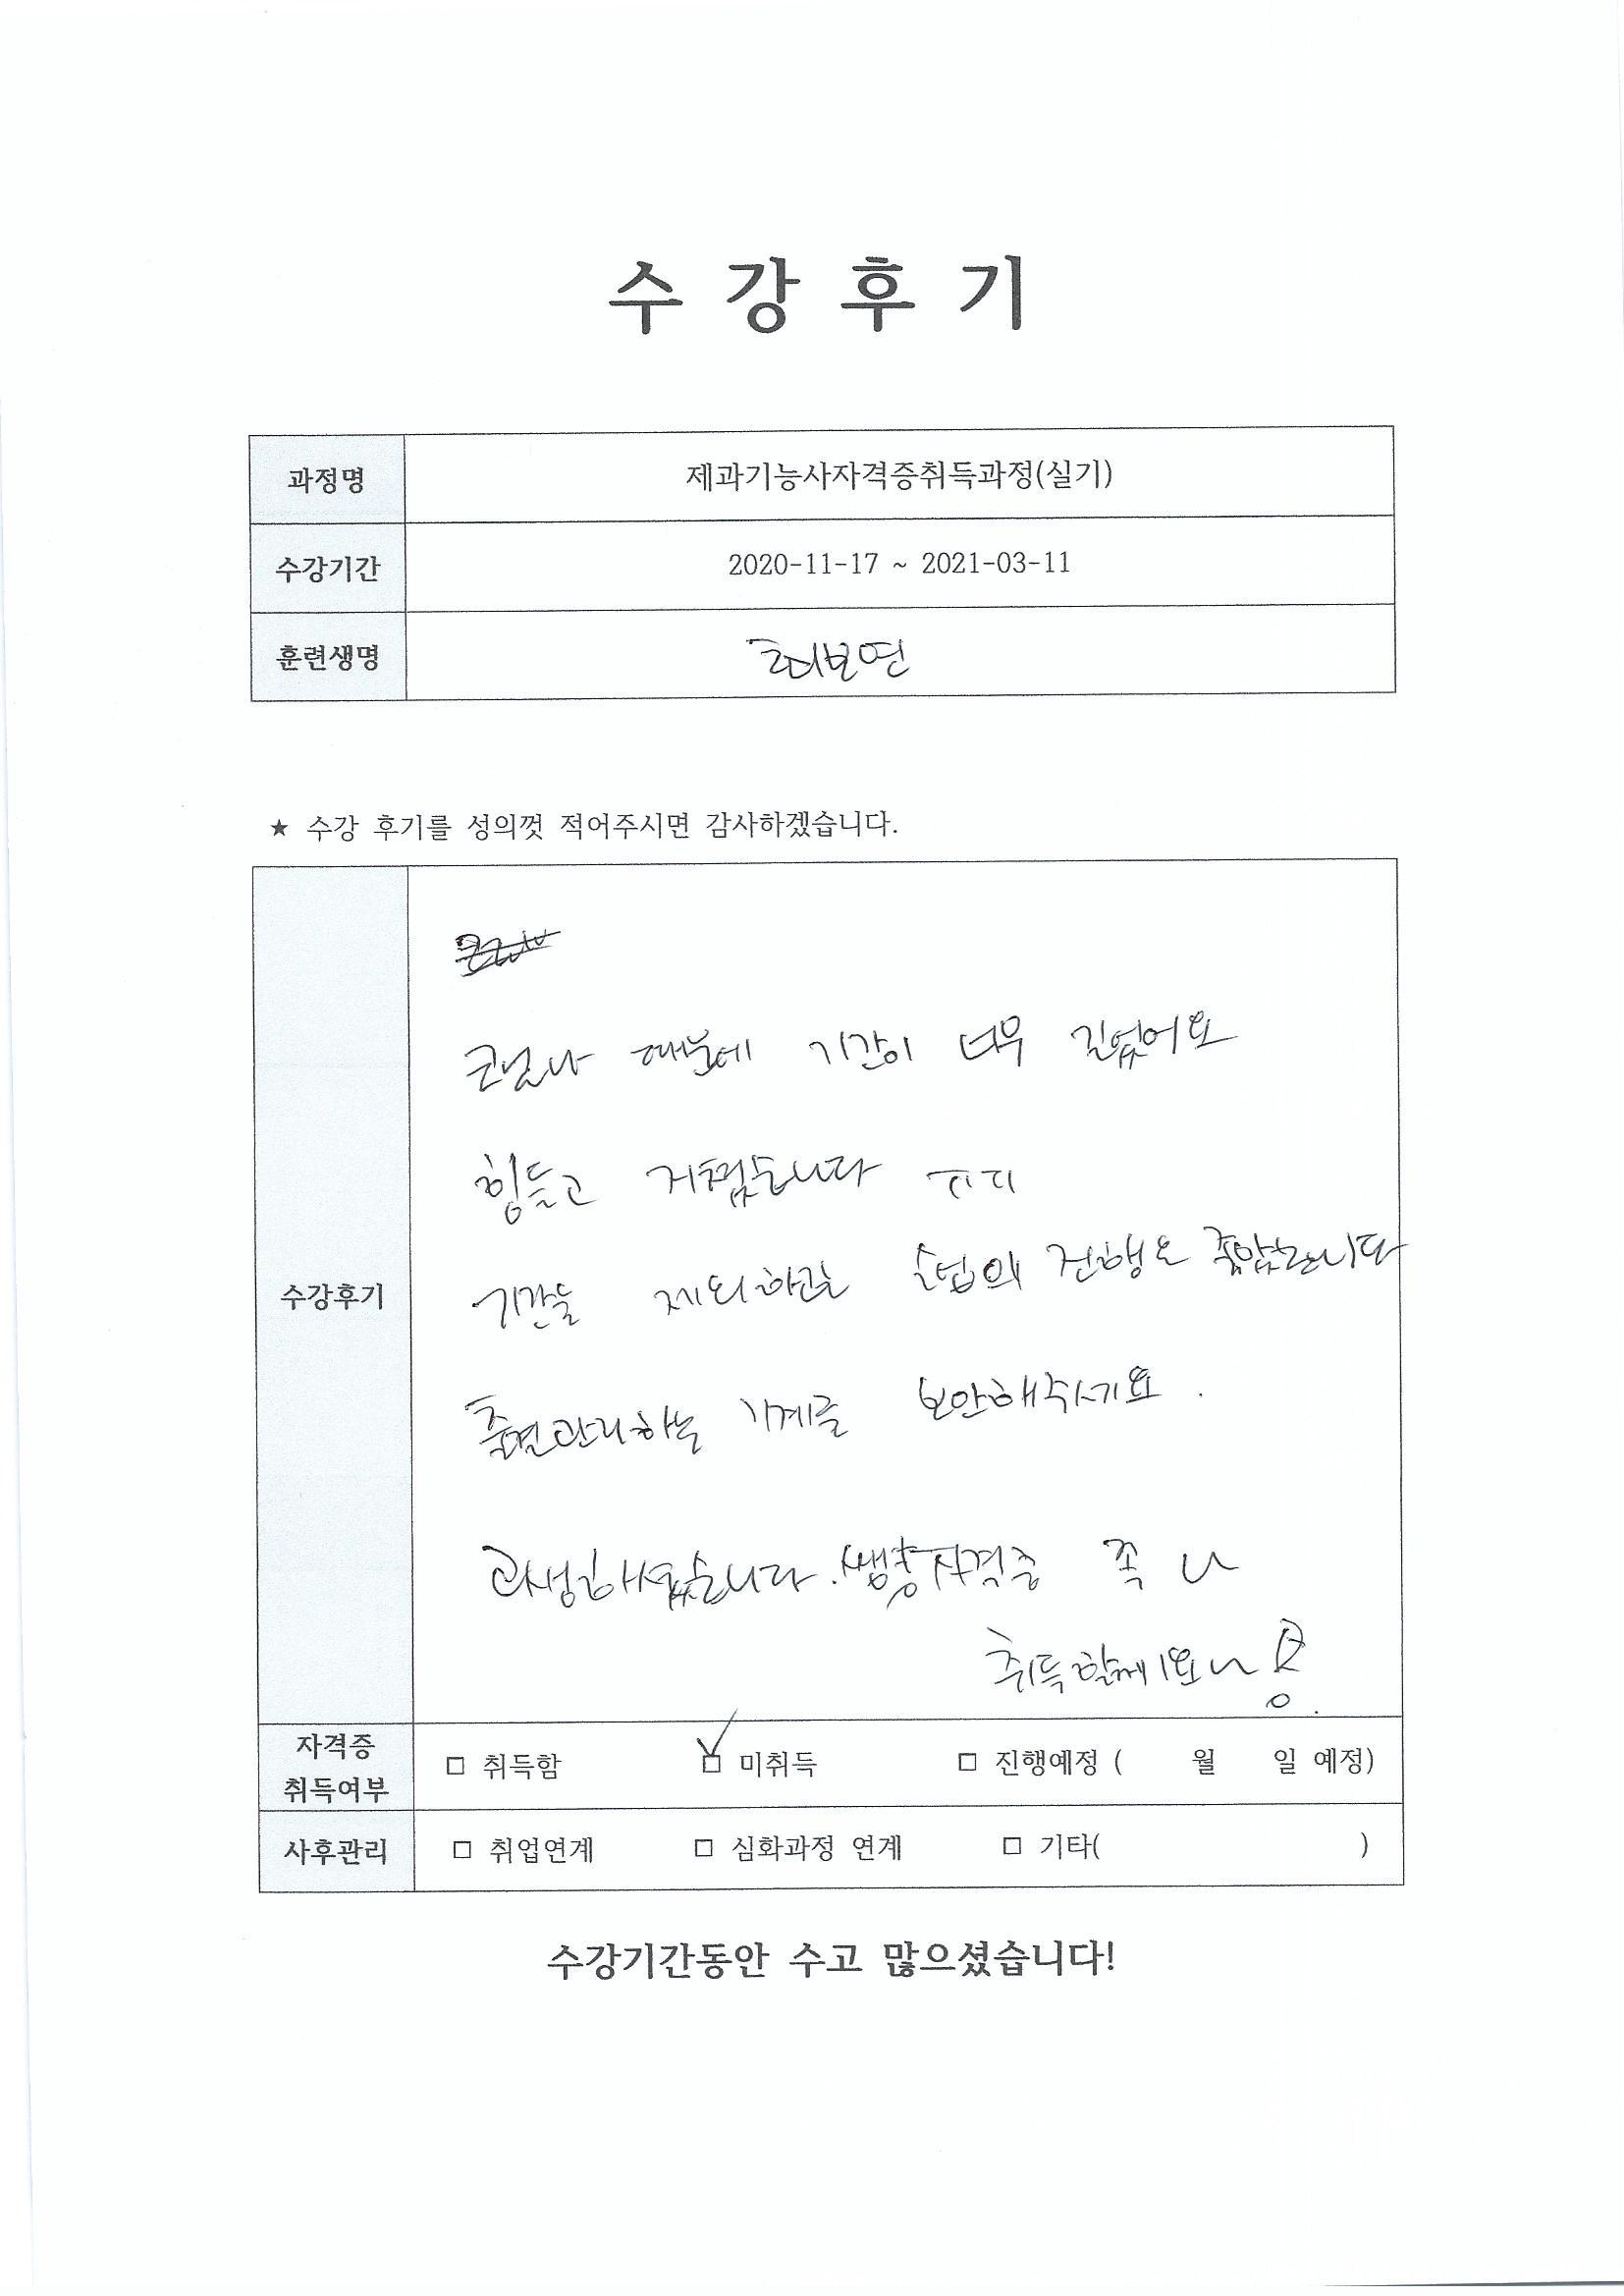 수 강 후 기
과정명 제과기능사자격증취득과정(실기)
수강기간 2020-11-17 ~ 2021-03-11
훈련생명 최보연
★ 수강 후기를 성의껏 적어주시면 감사하겠습니다.
수강후기
코로나 때문에 기간이 너무 길었어요
힘들고 지쳤습니다 ㅠㅠ
기간을 제외하곤 수업의 진행은 좋았습니다
출결관리하는 기계를 보안해주시기요.
고생하셨습니다. 자격증 꼭
취득할게요
자격증 취득여부 □ 취득함 ☑ 미취득 □ 진행예정 ( 월 일 예정)
사후관리 □ 취업연계 □ 심화과정 연계 □ 기타( )
수강기간동안 수고 많으셨습니다!